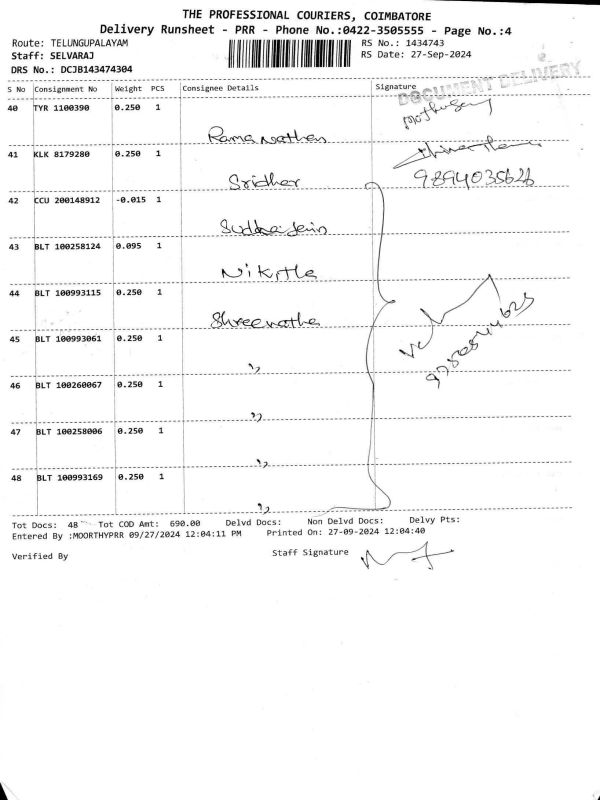 THE PROFESSIONAL COURIERS, COIMBATORE
Delivery Runsheet - PRR - Phone No.:0422-3505555 - Page No.:4
Route: TELUNGUPALAYAM RS No.: 1434743
Staff: SELVARAJ RS Date: 27-Sep-2024
DRS No.: DCJB143474304
DOCUMENT DELIVERY
S No Consignment No Weight PCS Consignee Details Signature
40 TYR 1100390 0.250 1
Ramanathan
41 KLK 8179280 0.250 1
Sridhar 9894035626
42 CCU 200148912 -0.015 1
43 BLT 100258124 0.095 1
Nikitha
44 BLT 100993115 0.250 1
Shreenatha
45 BLT 100993061 0.250 1
"
46 BLT 100260067 0.250 1
"
47 BLT 100258006 0.250 1
"
48 BLT 100993169 0.250 1
"
Tot Docs: 48 Tot COD Amt: 690.00 Delvd Docs: Non Delvd Docs: Delvy Pts:
Entered By :MOORTHYPRR 09/27/2024 12:04:11 PM Printed On: 27-09-2024 12:04:40
Verified By Staff Signature